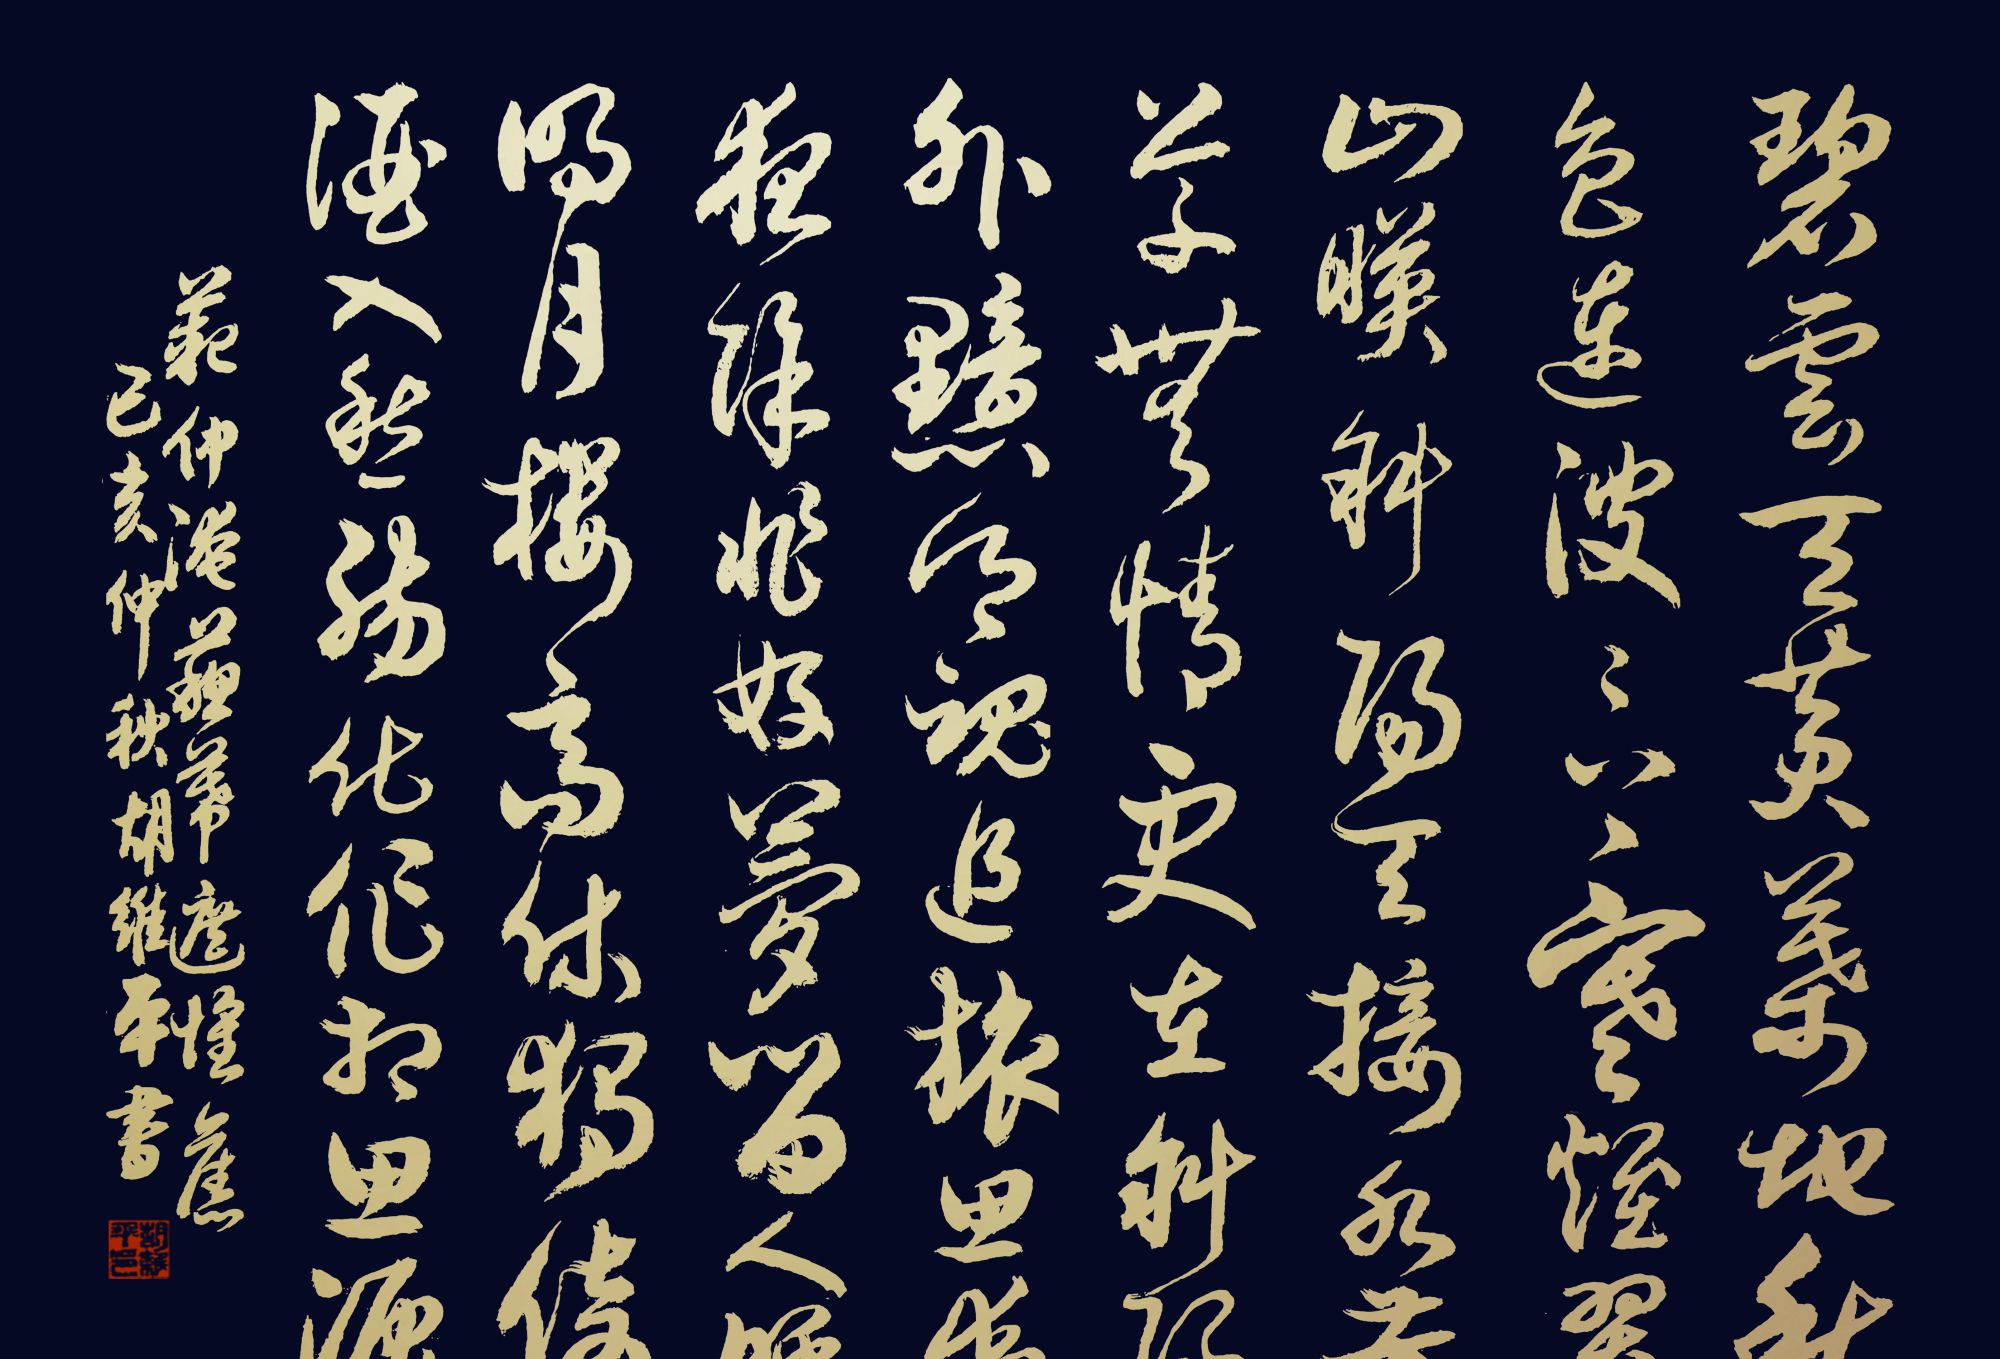 碧雲天黃葉地秋
色連波波上寒煙翠
山映斜陽天接水芳
草無情更在斜陽
外黯鄉魂追旅思
夜除非好夢留人睡
明月樓高休獨倚
酒入愁腸化作相思淚
范仲淹蘇幕遮懷舊
己亥仲秋胡維平書